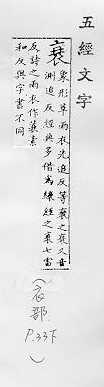 五經文字
衰
象形草雨衣先追反等衰之衰又音
測追反經典多借為縗絰之衰七雷
反詩之雨衣作蓑素
和反與字書不同
(衣部 P.33下)